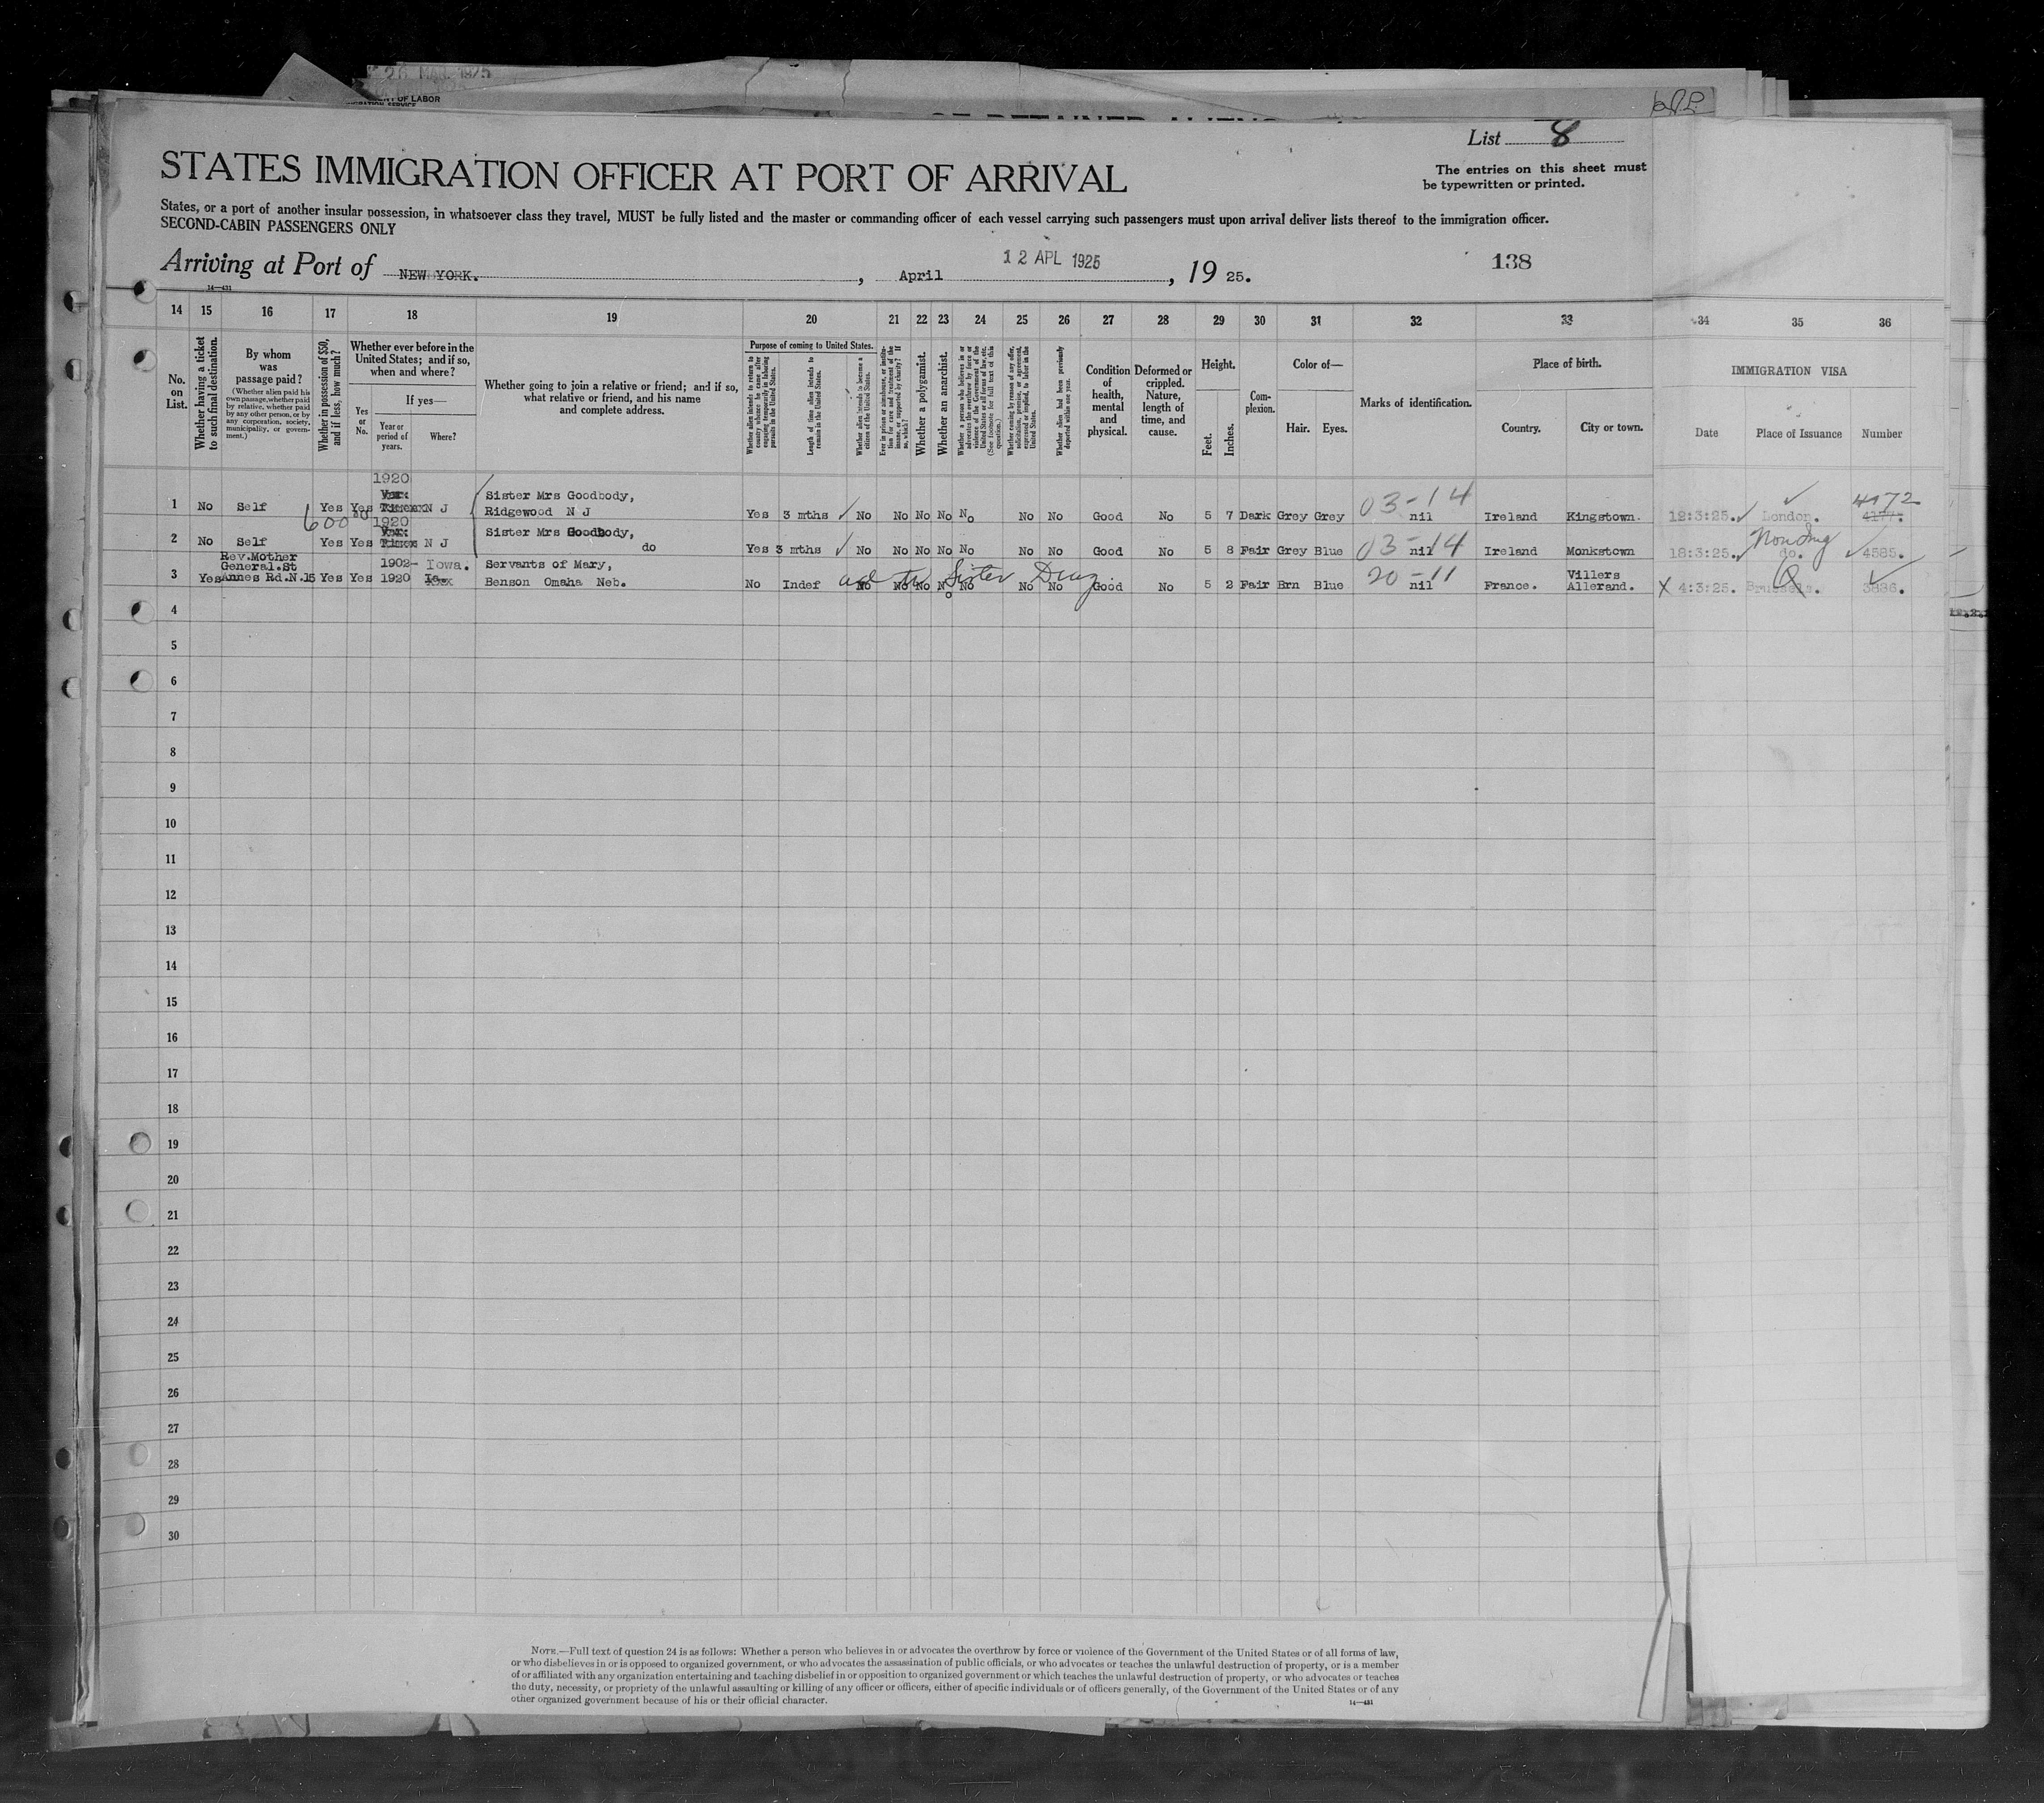 26 MAR 1925
OF LABOR
List 8
STATES IMMIGRATION OFFICER AT PORT OF ARRIVAL
The entries on this sheet must
be typewritten or printed.
States, or a port of another insular possession, in whatsoever class they travel, MUST be fully listed and the master or commanding officer of each vessel carrying such passengers must upon arrival deliver lists thereof to the immigration officer.
SECOND-CABIN PASSENGERS ONLY
Arriving at Port of NEW YORK. , April 12 APL 1925 , 19 25.
138
14—431
14 15 16 17 18 19 20 21 22 23 24 25 26 27 28 29 30 31 32 33 34 35 36
No. on List.
Whether having a ticket to such final destination.
By whom was passage paid?
(Whether alien paid his own passage, whether paid by relative, whether paid by any other person, or by any corporation, society, municipality, or government.)
Whether in possession of $50, and if less, how much?
Whether ever before in the United States; and if so, when and where?
Yes or No.
If yes—
Year or period of years.
Where?
Whether going to join a relative or friend; and if so, what relative or friend, and his name and complete address.
Purpose of coming to United States.
Whether alien intends to return to country whence he came after engaging temporarily in laboring pursuits in the United States.
Length of time alien intends to remain in the United States.
Whether alien intends to become a citizen of the United States.
Ever in prison or almshouse, or institution for care and treatment of the insane, or supported by charity? If so, which?
Whether a polygamist.
Whether an anarchist.
Whether a person who believes in or advocates the overthrow by force or violence of the Government of the United States or all forms of law, etc. (See footnote for full text of this question.)
Whether coming by reason of any offer, solicitation, promise, or agreement, expressed or implied, to labor in the United States.
Whether alien had been previously deported within one year.
Condition of health, mental and physical.
Deformed or crippled. Nature, length of time, and cause.
Height.
Feet.
Inches.
Complexion.
Color of—
Hair.
Eyes.
Marks of identification.
Place of birth.
Country.
City or town.
IMMIGRATION VISA
Date
Place of Issuance
Number
1 No Self Yes Yes 1920 N J Sister Mrs Goodbody, Ridgewood N J Yes 3 mths No No No No No No No Good No 5 7 Dark Grey Grey 03-14 nil Ireland Kingstown. 12:3:25. London. 4172 4177.
600
2 No Self Yes Yes 1920 N J Sister Mrs Goodbody, do Yes 3 mths No No No No No No No Good No 5 8 Fair Grey Blue 03-14 nil Ireland Monkstown 18:3:25. do. 4585.
3 Yes Rev.Mother General.St Annes Rd.N.15 Yes Yes 1902-1920 Iowa. Servants of Mary, Benson Omaha Neb. No Indef No No No No No No No Good No 5 2 Fair Brn Blue 20-11 nil France. Villers Allerand. X 4:3:25. Brussels. 3886.
Sister
4
5
6
7
8
9
10
11
12
13
14
15
16
17
18
19
20
21
22
23
24
25
26
27
28
29
30
NOTE.—Full text of question 24 is as follows: Whether a person who believes in or advocates the overthrow by force or violence of the Government of the United States or of all forms of law,
or who disbelieves in or is opposed to organized government, or who advocates the assassination of public officials, or who advocates or teaches the unlawful destruction of property, or is a member
of or affiliated with any organization entertaining and teaching disbelief in or opposition to organized government or which teaches the unlawful destruction of property, or who advocates or teaches
the duty, necessity, or propriety of the unlawful assaulting or killing of any officer or officers, either of specific individuals or of officers generally, of the Government of the United States or of any
other organized government because of his or their official character.
14—431